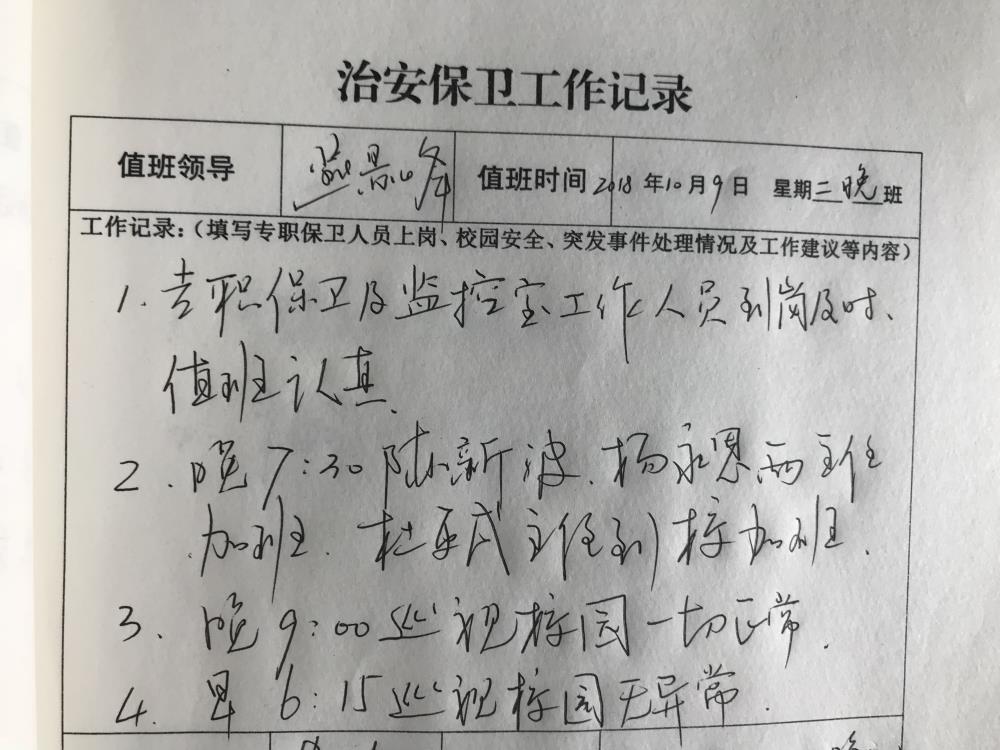 治安保卫工作记录
值班领导 值班时间 2018年10月9日 星期二晚班
工作记录:(填写专职保卫人员上岗、校园安全、突发事件处理情况及工作建议等内容)
1. 专职保卫及监控室工作人员到岗及时、
值班认真.
2. 晚7:30 陈新波、杨永恩两主任
加班. 杜平民主任到校加班.
3. 晚9:00巡视校园一切正常.
4. 早6:15巡视校园无异常.